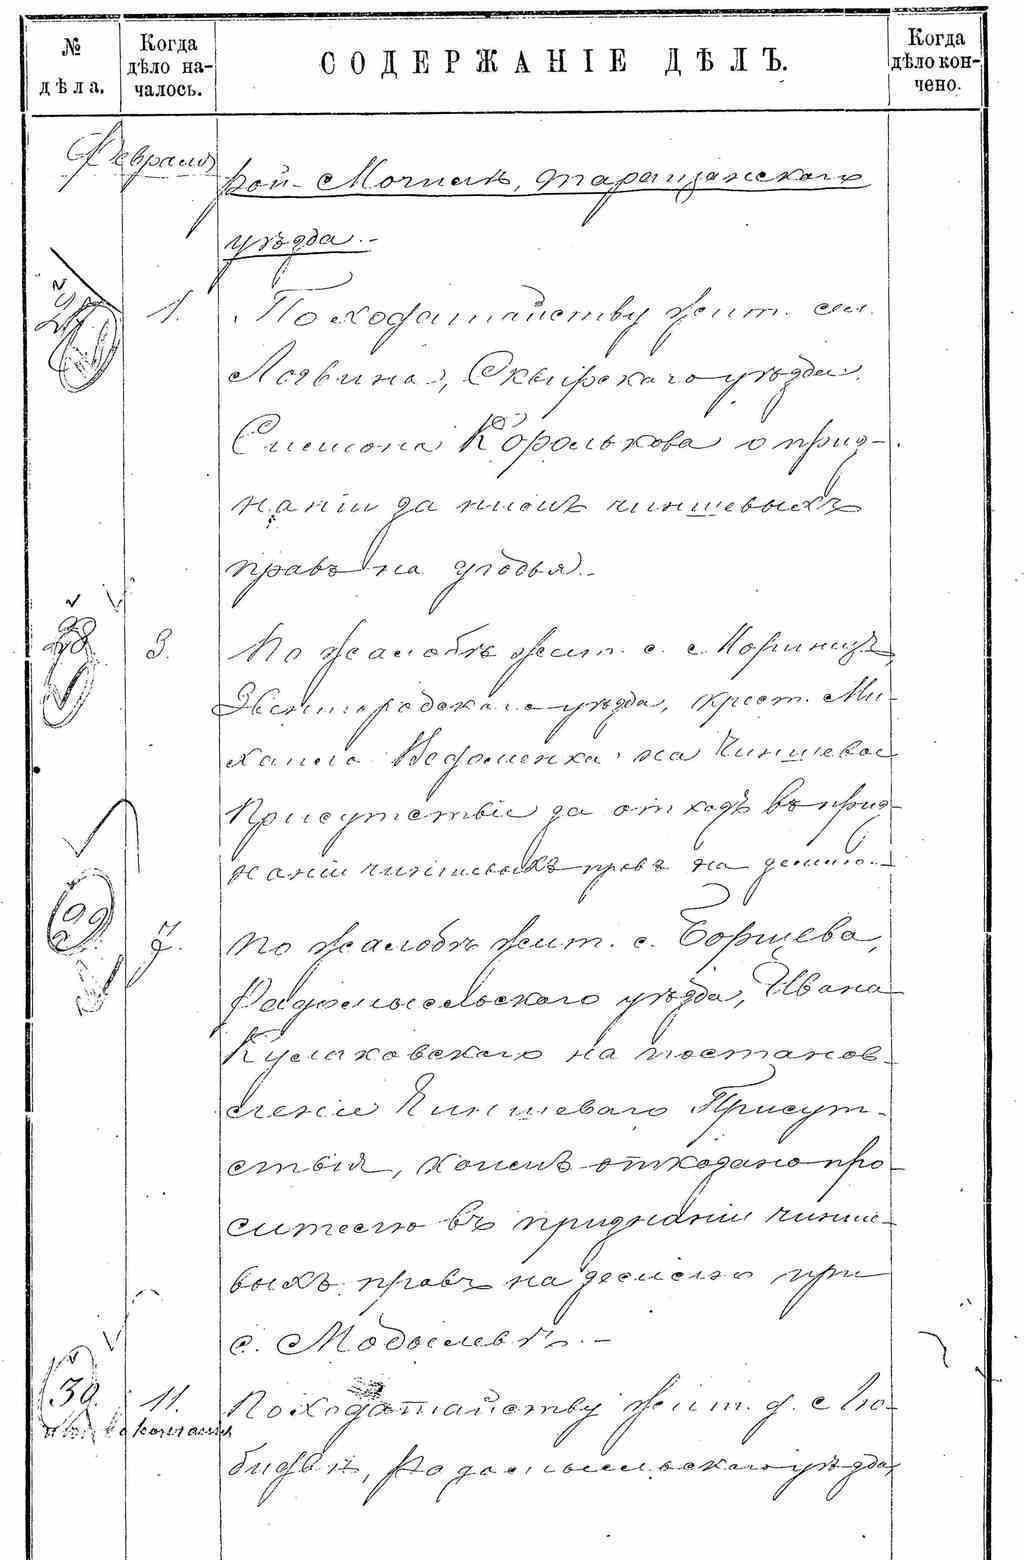 № дѣла.
Когда дѣло на-чалось.
СОДЕРЖАНІЕ ДѢЛЪ.
Когда дѣло кон-чено.
Февраля
рой- Мочилѣ, Таращанскаго
уѣзда.-
27 1. По ходатайству жит. сел.
Логвина, Сквирскаго уѣзда.
Симона Королькова о приз-
наніи за нимъ чиншевыхъ
правъ на угодья.-
28 3. По жалобѣ жит. с. Моринцъ,
Звенигородскаго уѣзда, крест. Ми-
хаила на Чиншевое
Присутствіе за отказъ въ приз-
наніи чиншевыхъ правъ на землю.-
29 7. По жалобѣ жит. с. Борщева,
Радомысльскаго уѣзда, Ивана
Кулаковскаго на постанов-
леніе Чиншеваго Присут-
ствія, коимъ отказано про-
сителю въ признаніи чинше-
выхъ правъ на землю при
с.
30. 11. По ходатайству жит. д. Лю-
Радомысльскаго уѣзда,